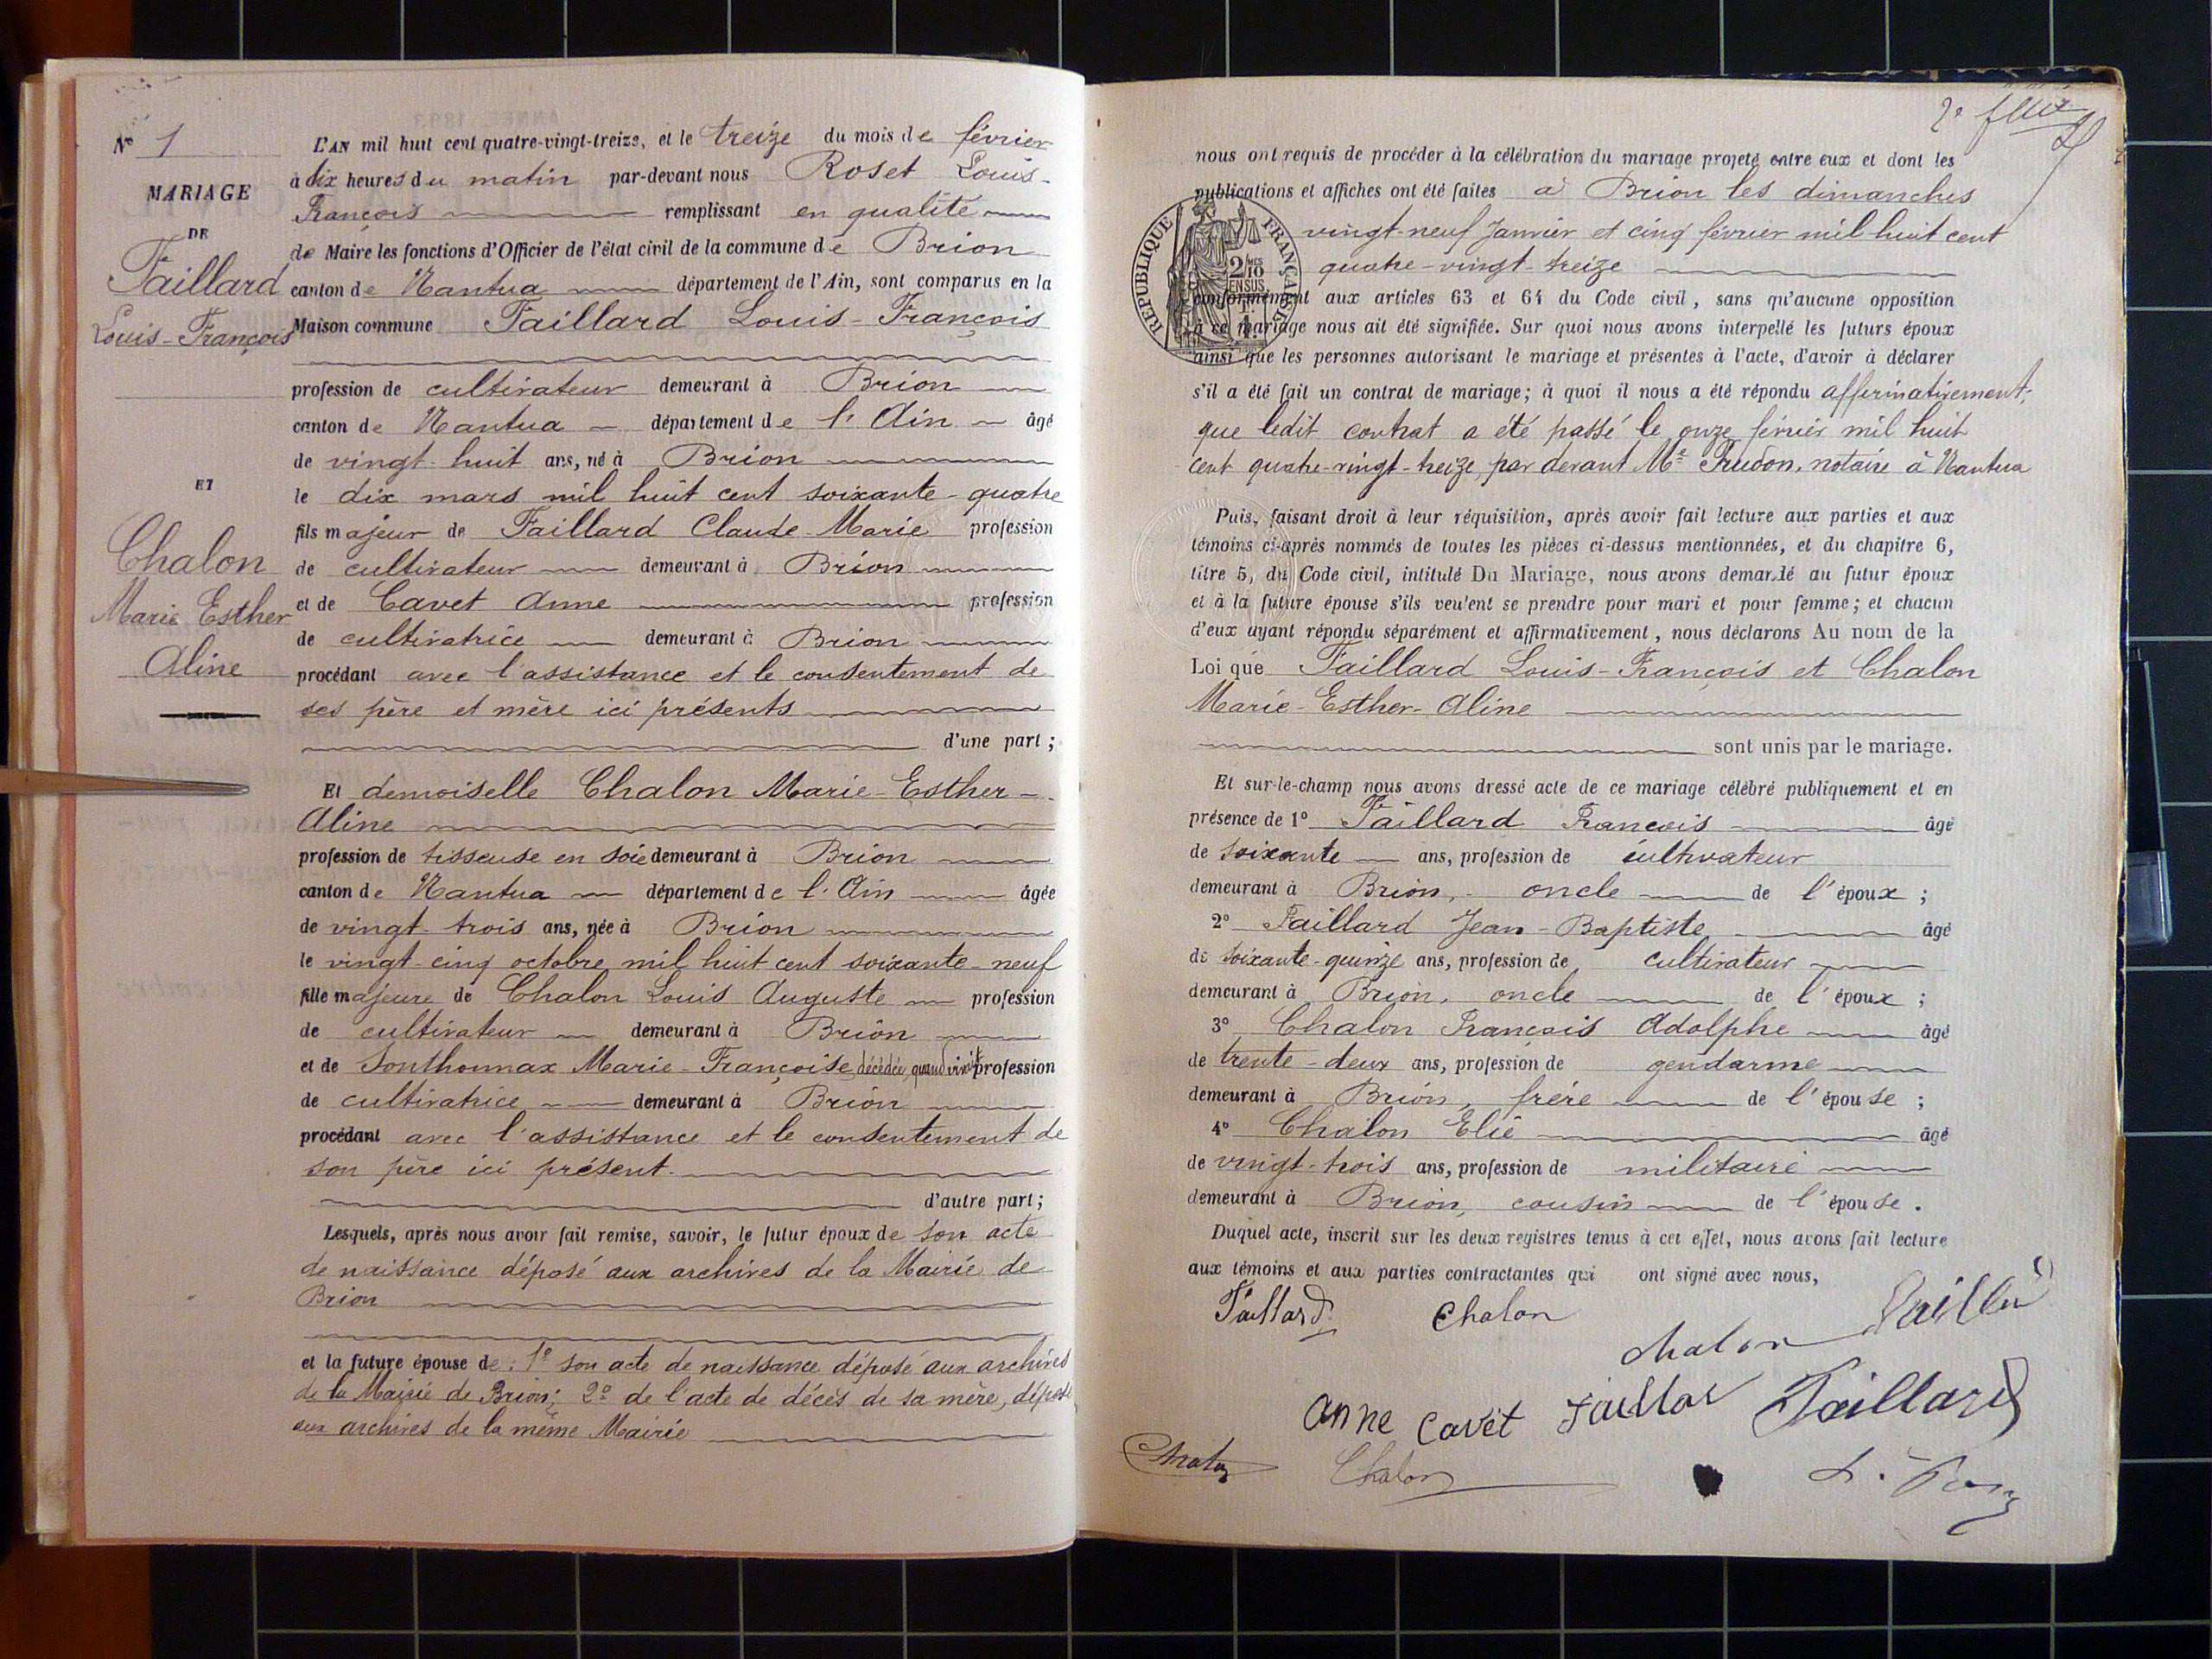 N° 1
MARIAGE
DE
Faillard
Louis-François
ET
Chalon
Marie Esther
Aline
L'AN mil huit cent quatre-vingt-treize, et le treize du mois de février
à dix heures du matin par-devant nous Roset Louis-
François remplissant en qualité
de Maire les fonctions d'Officier de l'état civil de la commune de Brion
canton de Nantua département de l'Ain, sont comparus en la
Maison commune Faillard Louis-François
profession de cultivateur demeurant à Brion
canton de Nantua département de l'Ain âgé
de vingt-huit ans, né à Brion
le dix mars mil huit cent soixante-quatre
fils majeur de Faillard Claude-Marie profession
de cultivateur demeurant à Brion
et de Cavet Anne profession
de cultivatrice demeurant à Brion
procédant avec l'assistance et le consentement de
ses père et mère ici présents
d'une part;
Et demoiselle Chalon Marie-Esther-
Aline
profession de tisseuse en soie demeurant à Brion
canton de Nantua département de l'Ain âgée
de vingt-trois ans, née à Brion
le vingt-cinq octobre mil huit cent soixante-neuf
fille majeure de Chalon Louis Auguste profession
de cultivateur demeurant à Brion
et de Sonthonnax Marie-Françoise décédée, quand vivait profession
de cultivatrice demeurant à Brion
procédant avec l'assistance et le consentement de
son père ici présent.
d'autre part;
Lesquels, après nous avoir fait remise, savoir, le futur époux de son acte
de naissance déposé aux archives de la Mairie de
Brion
et la future épouse de: 1° son acte de naissance déposé aux archives
de la Mairie de Brion; 2° de l'acte de décès de sa mère, déposé
aux archives de la même Mairie
2e
nous ont requis de procéder à la célébration du mariage projeté entre eux et dont les
publications et affiches ont été faites à Brion les dimanches
vingt-neuf Janvier et cinq février mil huit cent
quatre-vingt-treize
conformément aux articles 63 et 64 du Code civil, sans qu'aucune opposition
à ce mariage nous ait été signifiée. Sur quoi nous avons interpellé les futurs époux
ainsi que les personnes autorisant le mariage et présentes à l'acte, d'avoir à déclarer
s'il a été fait un contrat de mariage; à quoi il nous a été répondu affirmativement;
que ledit contrat a été passé le onze février mil huit
cent quatre-vingt-treize, par devant Me Prudon, notaire à Nantua
RÉPUBLIQUE FRANÇAISE
2 MES 10 EN SUS
Puis, faisant droit à leur réquisition, après avoir fait lecture aux parties et aux
témoins ci-après nommés de toutes les pièces ci-dessus mentionnées, et du chapitre 6,
titre 5, du Code civil, intitulé Du Mariage, nous avons demandé au futur époux
et à la future épouse s'ils veulent se prendre pour mari et pour femme; et chacun
d'eux ayant répondu séparément et affirmativement, nous déclarons Au nom de la
Loi que Faillard Louis-François et Chalon
Marie-Esther-Aline
sont unis par le mariage.
Et sur-le-champ nous avons dressé acte de ce mariage célébré publiquement et en
présence de 1° Faillard François âgé
de soixante ans, profession de cultivateur
demeurant à Brion, oncle de l'époux;
2° Faillard Jean-Baptiste âgé
de soixante-quinze ans, profession de cultivateur
demeurant à Brion, oncle de l'époux;
3° Chalon François Adolphe âgé
de trente-deux ans, profession de gendarme
demeurant à Brion, frère de l'épouse;
4° Chalon Elie âgé
de vingt-trois ans, profession de militaire
demeurant à Brion, cousin de l'épouse.
Duquel acte, inscrit sur les deux registres tenus à cet effet, nous avons fait lecture
aux témoins et aux parties contractantes qui ont signé avec nous,
Faillard Chalon
chalon
anne Cavet Faillar Faillard
Chalon Chalon